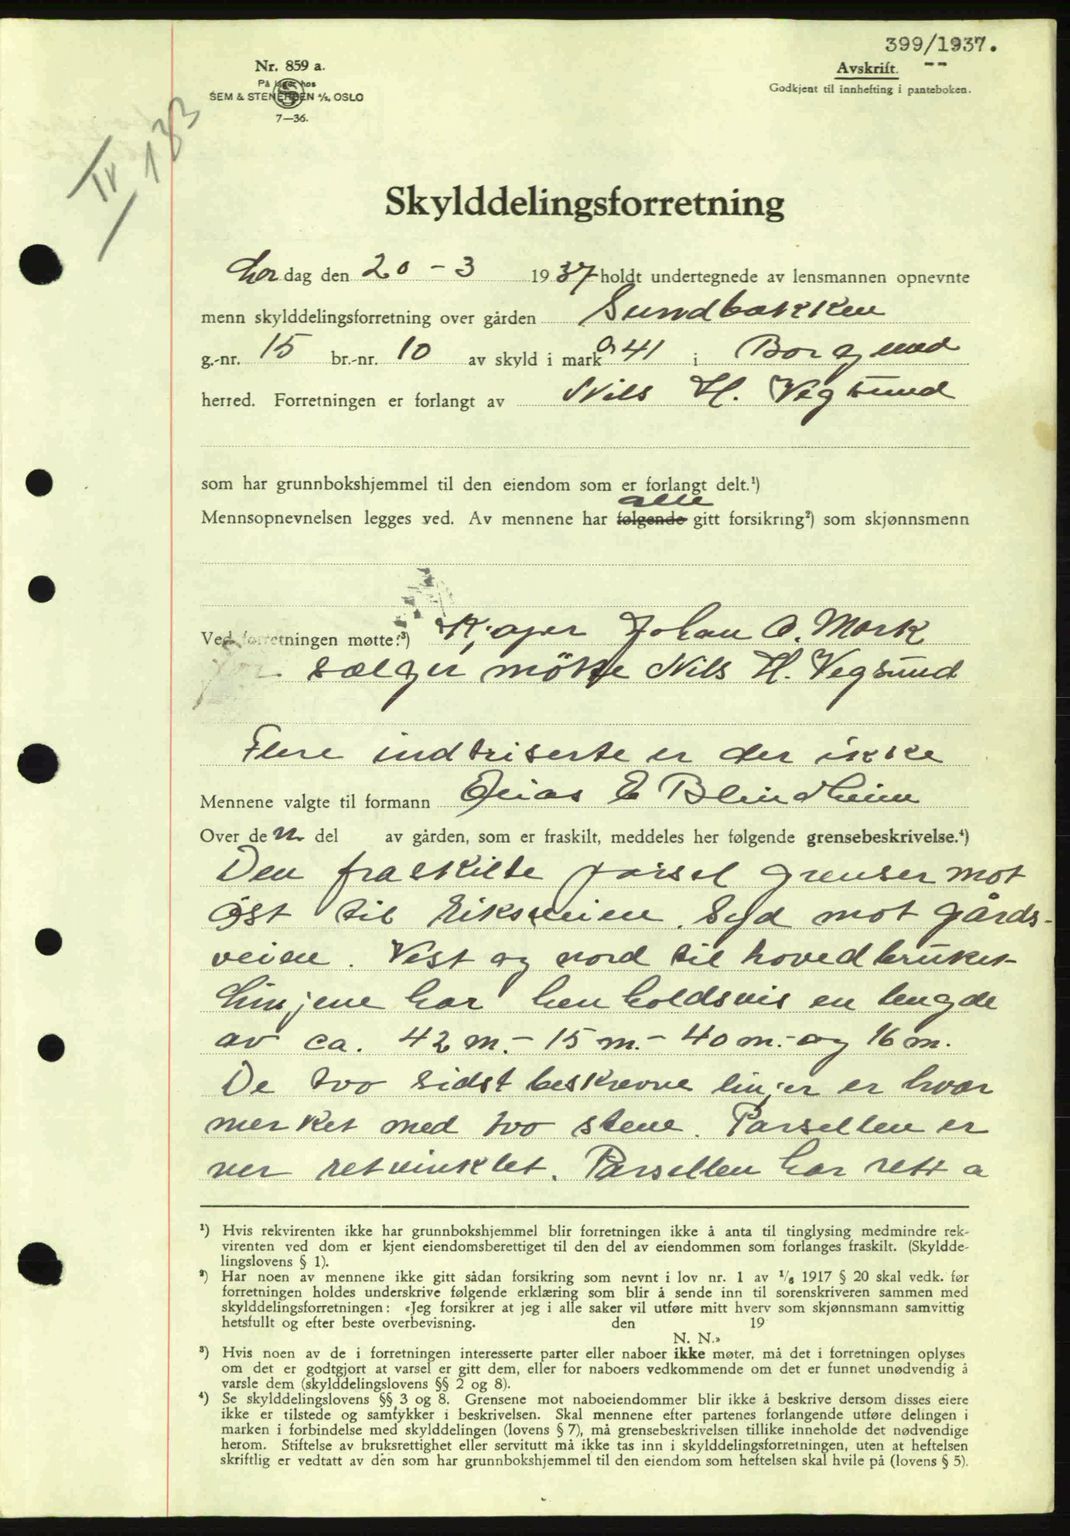 399/1937.
Nr. 859 a.
På lager hos
SEM & STENERSEN A/S, OSLO
7—36.
Avskrift.
Godkjent til innhefting i panteboken.
IV 133
Skylddelingsforretning
Lør dag den 20 - 3 1937 holdt undertegnede av lensmannen opnevnte
menn skylddelingsforretning over gården Sundbakken
g.-nr. 15 br.-nr. 10 av skyld i mark 0,41 i Borgund
herred. Forretningen er forlangt av Nils H. Vegsund
som har grunnbokshjemmel til den eiendom som er forlangt delt.¹)
alle
Mennsopnevnelsen legges ved. Av mennene har følgende gitt forsikring²) som skjønnsmenn
Ved forretningen møtte:³) Kjøper Johan O. Mork
for sælger møtte Nils H. Vegsund
Flere indtriserte er der ikke
Mennene valgte til formann E Blindheim
Over den del av gården, som er fraskilt, meddeles her følgende grensebeskrivelse.⁴)
Den fraskilte parsel grenser mot
øst til Riksveien. Syd mot gårds-
veien. Vest og nord til hovedbruket
Linjene har henholdsvis en lengde
av ca. 42 m. - 15 m. - 40 m. - og 16 m.
De tvo sidst beskrevne linjer er hvor
merket med tvo stene. Parsellen er
ner retvinklet. Parsellen har rett a
¹) Hvis rekvirenten ikke har grunnbokshjemmel blir forretningen ikke å anta til tinglysing medmindre rek-
virenten ved dom er kjent eiendomsberettiget til den del av eiendommen som forlanges fraskilt. (Skyldde-
lingslovens § 1).
²) Har noen av mennene ikke gitt sådan forsikring som nevnt i lov nr. 1 av 1/6 1917 § 20 skal vedk. før
forretningen holdes underskrive følgende erklæring som blir å sende inn til sorenskriveren sammen med
skylddelingsforretningen: «Jeg forsikrer at jeg i alle saker vil utføre mitt hverv som skjønnsmann samvittig
hetsfullt og efter beste overbevisning. den 19
N. N.»
³) Hvis noen av de i forretningen interesserte parter eller naboer ikke møter, må det i forretningen oplyses
om det er godtgjort at varsel er gitt dem, eller for naboers vedkommende om det er funnet unødvendig å
varsle dem (skylddelingslovens §§ 2 og 8).
⁴) Se skylddelingslovens §§ 3 og 8. Grensene mot naboeiendommer blir ikke å beskrive dersom disses eiere
ikke er tilstede og samtykker i beskrivelsen. Skal mennene efter partenes forlangende utføre delingen i
marken i forbindelse med skylddelingen (lovens § 7), må grensebeskrivelsen tillike inneholde det nødvendige
herom. Stiftelse av bruksrettighet eller servitutt må ikke tas inn i skylddelingsforretningen, uten at heftelsen
skriftlig er vedtatt av den som har grunnbokshjemmel til den eiendom som heftelsen skal hvile på (lovens § 5).